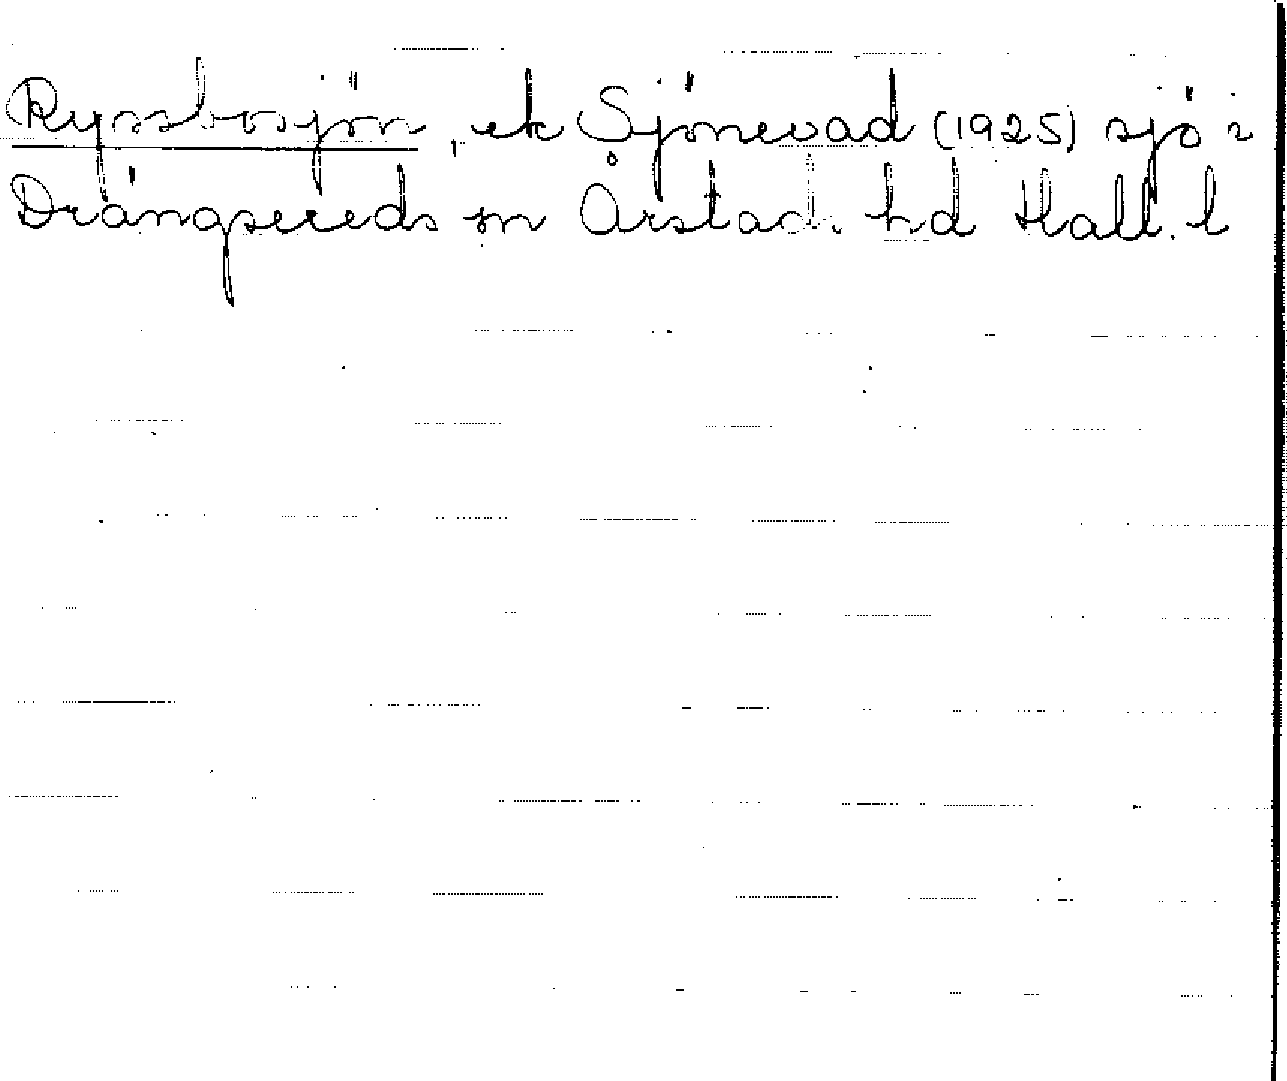 Ryssbosjön, ek Sjönevad (1925) sjö i
Drängsereds sn Årstads hd Hall. l